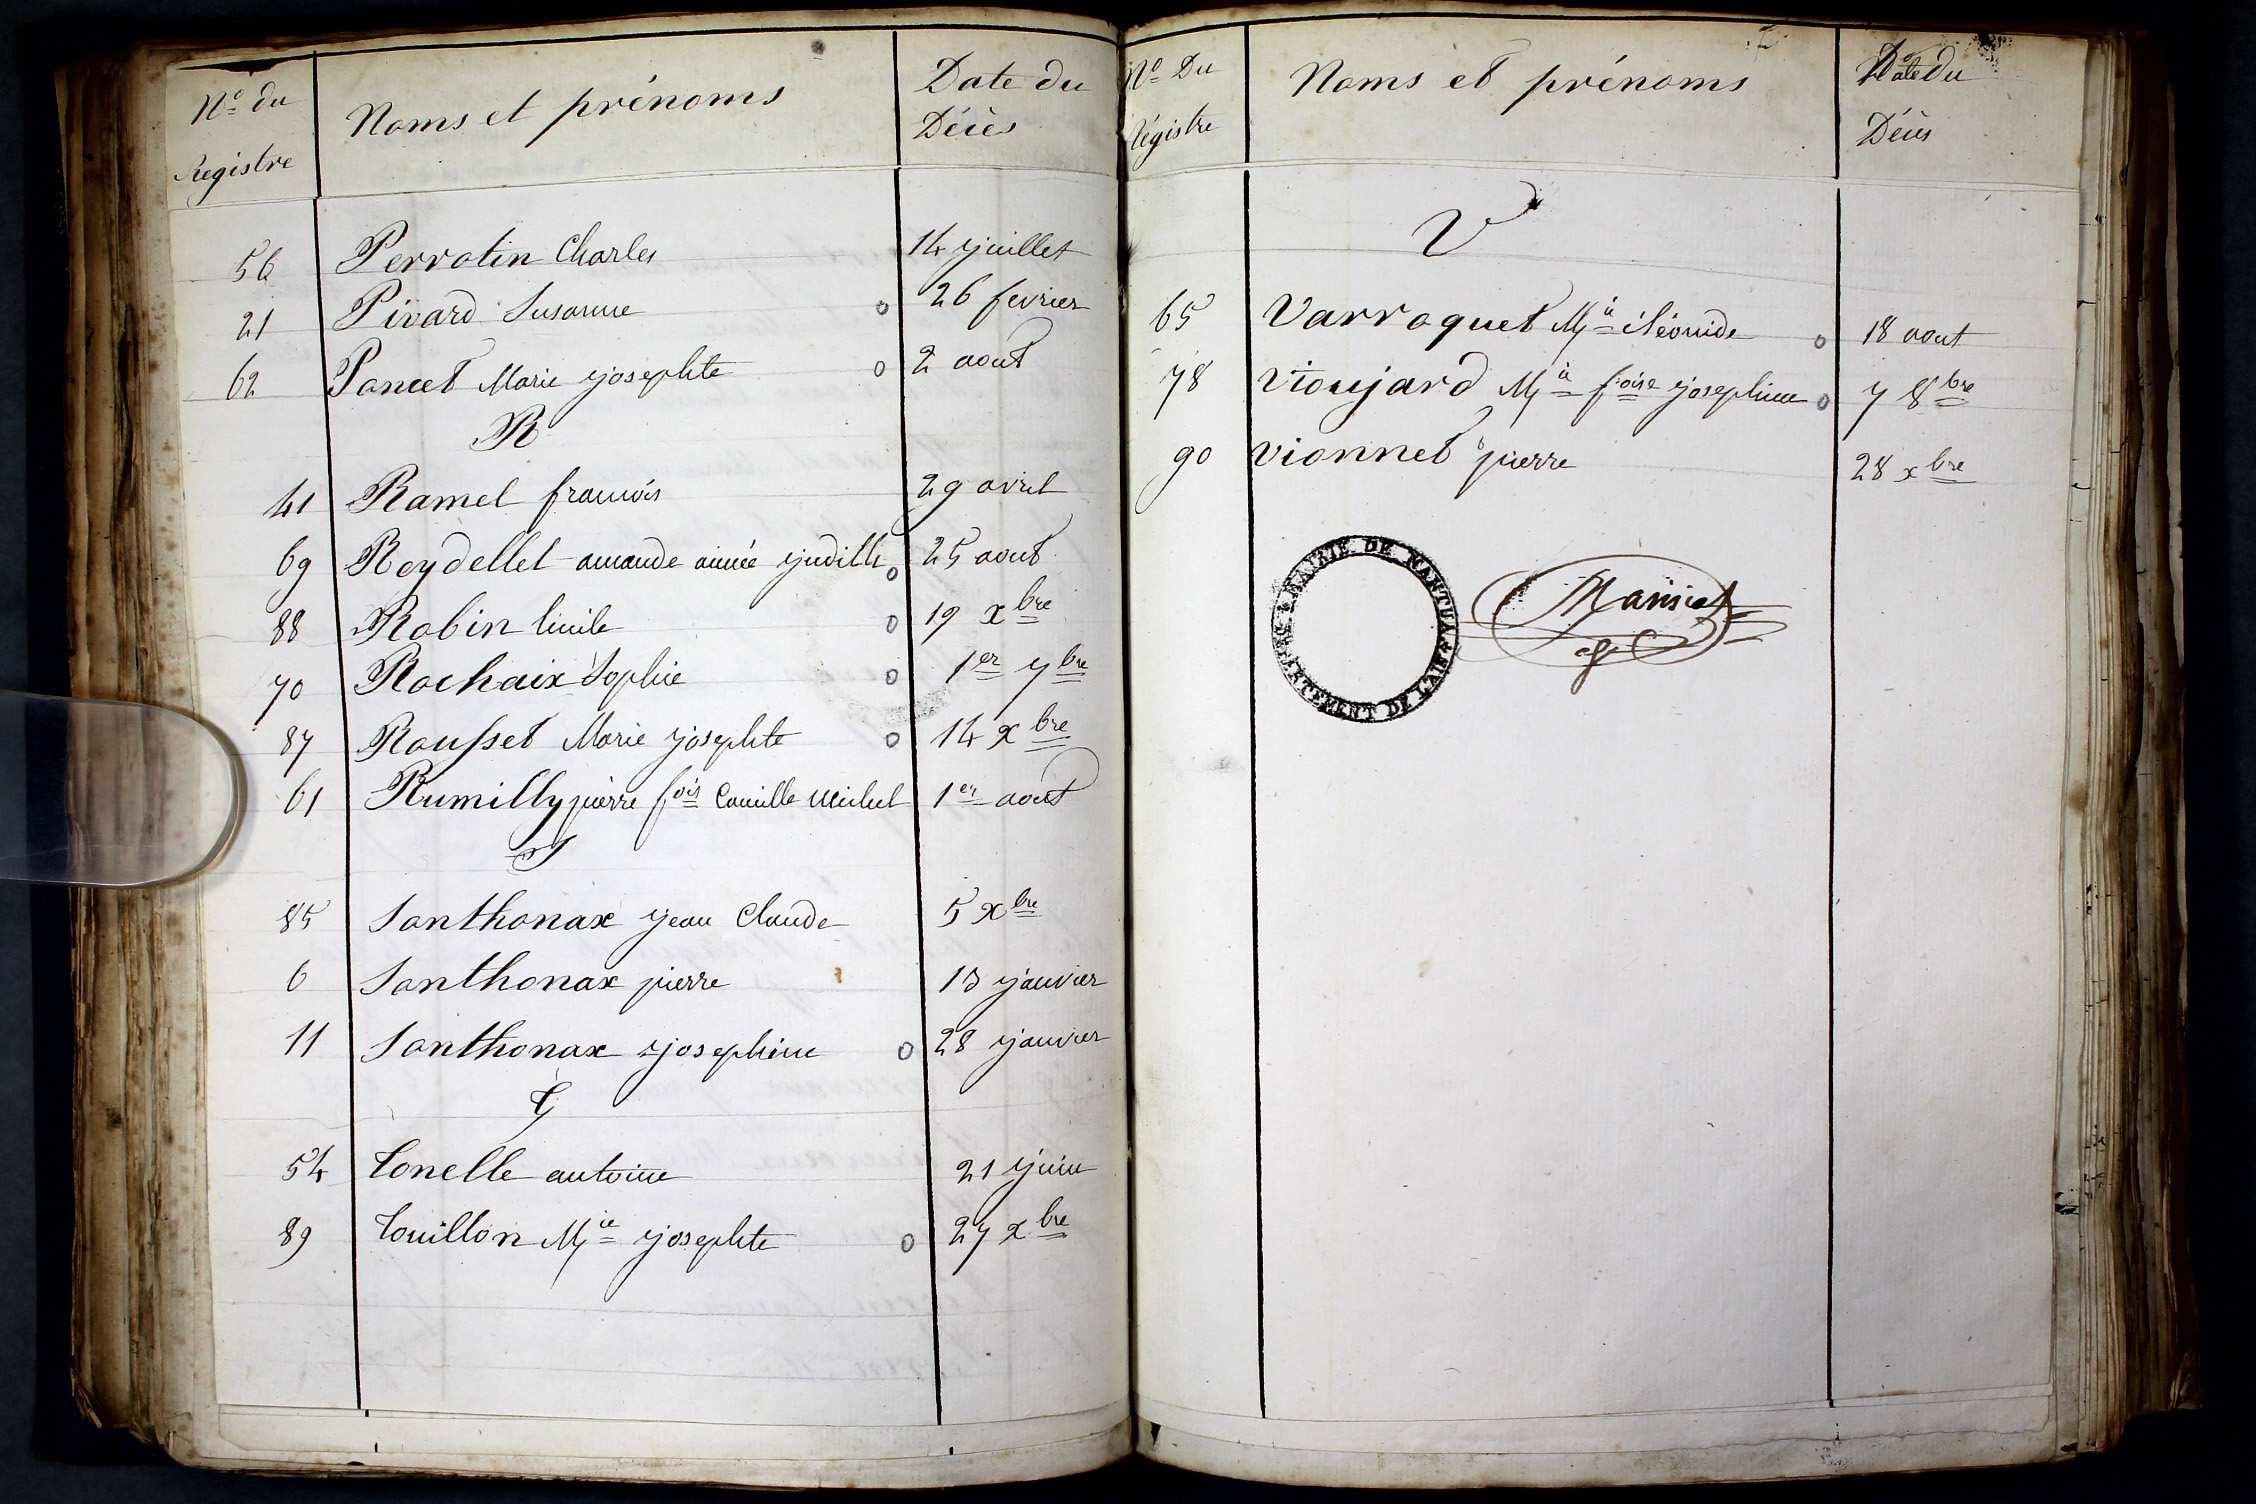 No du Registre Noms et prénoms Date du Décès
56 Perrotin Charles 14 juillet
21 Pivard Susanne o 26 fevrier
62 Poncet Marie josephte o 2 aout
R
41 Ramel francois 29 avril
69 Reydellet amande aimée judith o 25 aout
88 Robin Emile o 19 xbre
70 Rochaix Sophie o 1er 7bre
87 Rousset Marie josephte o 14 xbre
61 Rumilly pierre fois Camille Michel 1er aout
S
85 Santhonax jean Claude 5 xbre
6 Santhonax pierre 13 janvier
11 Santhonax josephine o 28 janvier
T
54 Tonelle antoine 21 juin
89 Touillon Mie josephte o 27 xbre
No Du Régistre Noms et prénoms Date du Décès
V
65 Varroquet Mia Cléonide o 18 aout
78 Vioujard Mia foise josephine o 7 8bre
90 Vionnet pierre 28 xbre
MAIRIE DE MANTUA DÉPARTEMENT DE L'AIN